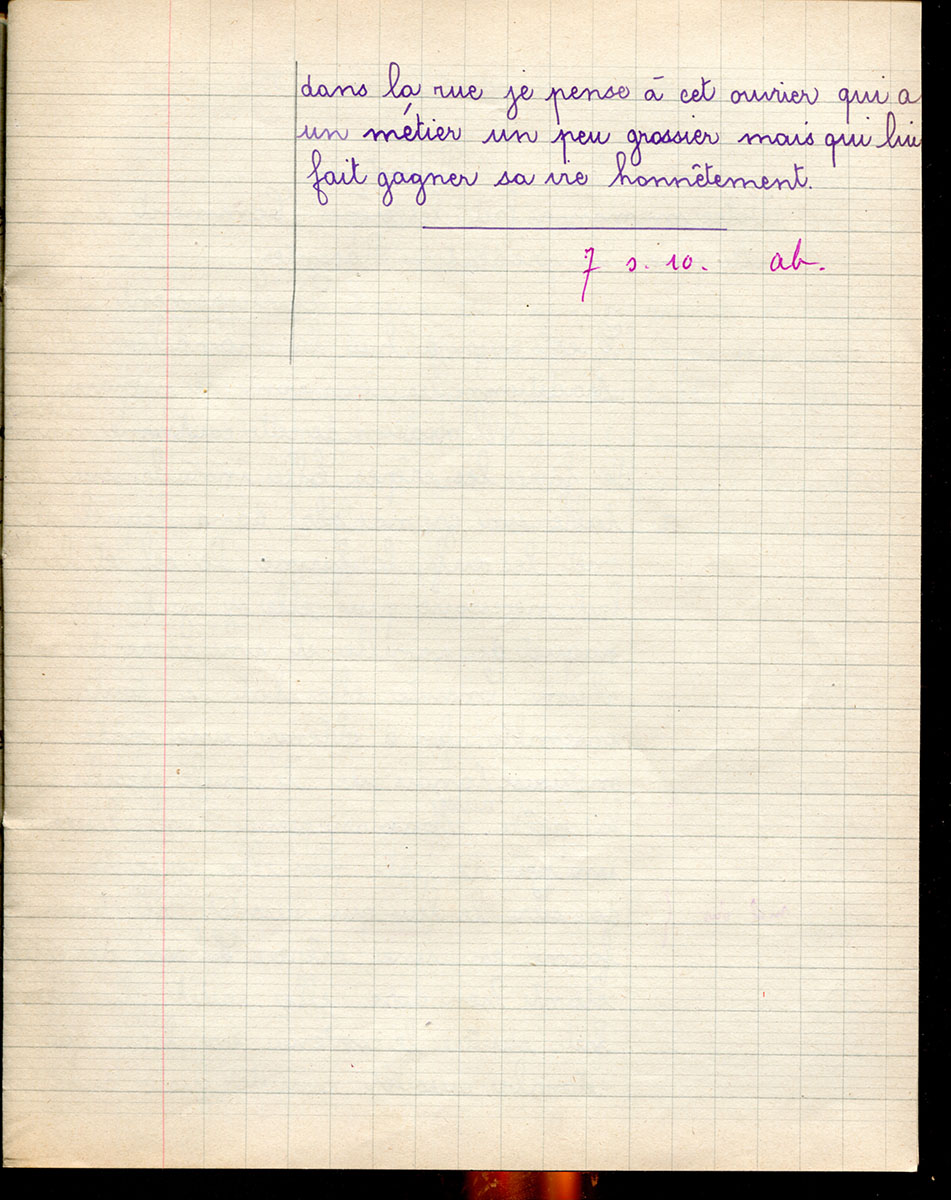 dans la rue je pense à cet ouvrier qui a
un métier un peu grossier mais qui lui
fait gagner sa vie honnêtement.
7 s. 10. ab.